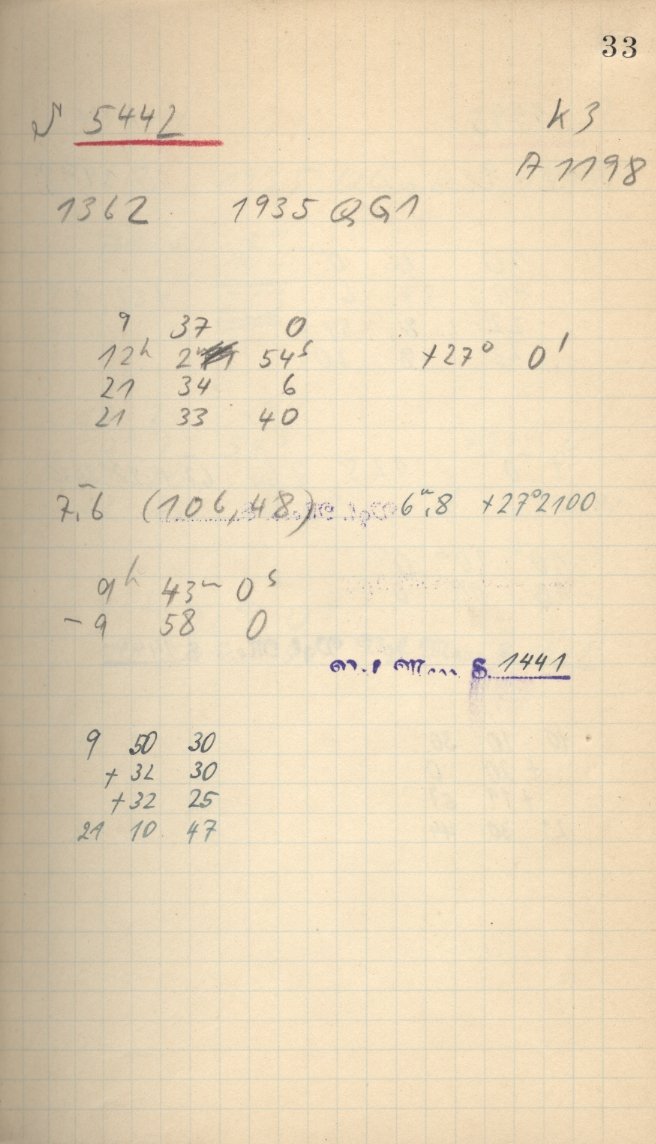 33
5442
K 3
A 1198
1362 1935 QG1
9 37 0
12h 2m 54s +27° 0'
21 34 6
21 33 40
7,m6 (106,48) 6m,8 +27°2100
9h 43m 0s
- 9 58 0
S. 1441
9 50 30
+ 32 30
+ 32 25
21 10 47